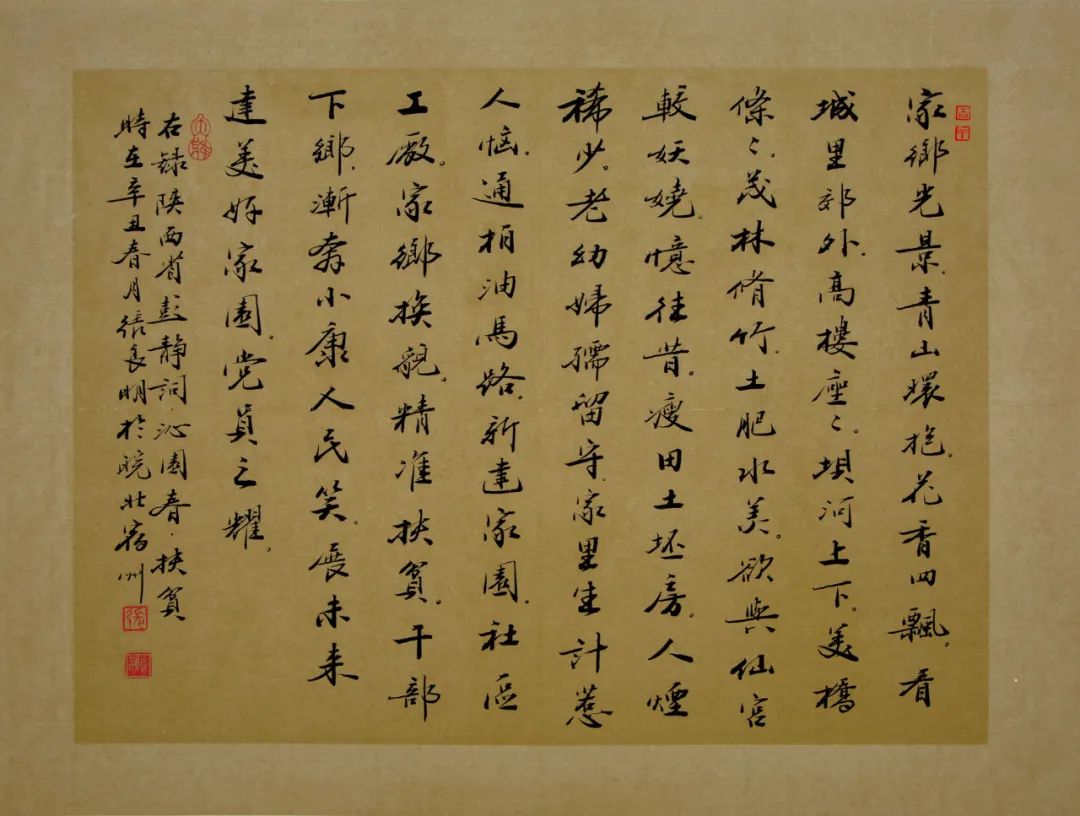 家鄉光景、青山環抱、花香四飄。看
城里郊外、高樓座〻、垻河上下、美橋
條〻。茂林脩竹、土肥水美。欲與仙宮
較妖嬈。憶往昔、瘦田土坯房。人煙
稀少。老幼婦孺留守、家里生計惹
人惱。通柏油馬路、新建家園、社區
工廠。家鄉換靚。精准扶貧。干部
下鄉、漸奔小康人民笑。展未来
建美好家園。党員之耀。
右録陝西省彭靜詞·沁園春·扶貧
時在辛丑春月張良明於皖北宿州